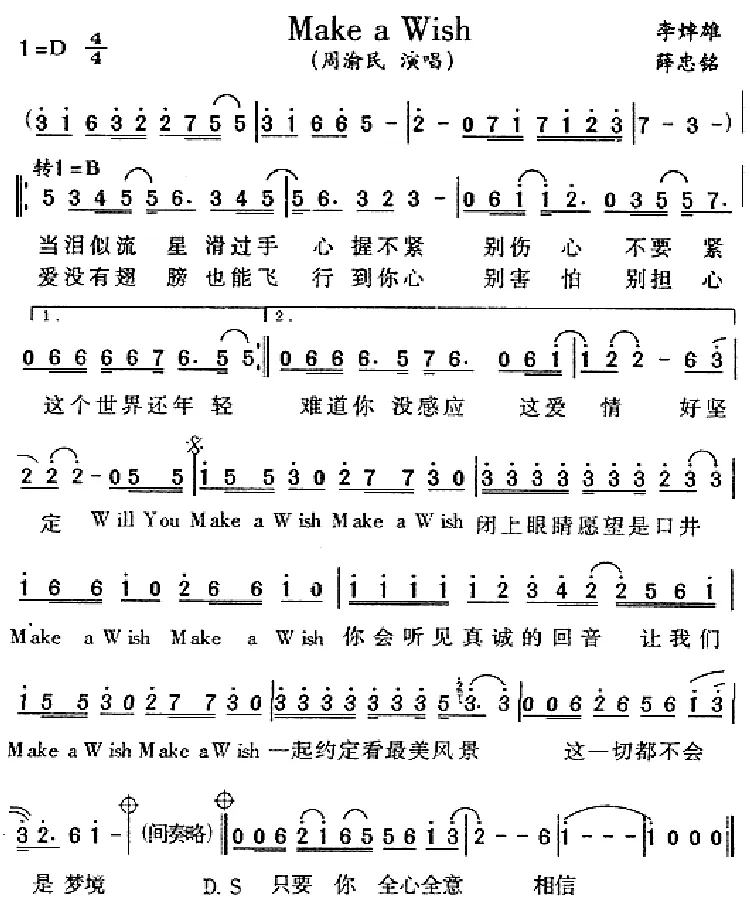 Make a Wish
1=D 4/4
(周渝民 演唱)
李焯雄
薛忠铭
(3 1 6 3 2 2 7 5 5 | 3 1 6 6 5 - | 2 - 0 7 1 7 1 2 3 | 7 - 3 -)
转1=B
5 3 4 5 5 6. 3 4 5 | 5 6. 3 2 3 - | 0 6 1 1 2. 0 3 5 5 7.
当泪似流 星 滑过手 心 握不紧 别伤 心 不要 紧
爱没有翅 膀 也能飞 行 到你心 别害 怕 别担 心
1. 2.
0 6 6 6 6 7 6. 5 5 :|| 0 6 6 6. 5 7 6. 0 6 1 | 1 2 2 - 6 3
这个世界还年 轻 难道你 没感应 这爱 情 好坚
2 2 2 - 0 5 5 | 1 5 5 3 0 2 7 7 3 0 | 3 3 3 3 3 3 3 2 3 3 |
定 Will You Make a Wish Make a Wish 闭上眼睛愿望是口井
1 6 6 1 0 2 6 6 1 0 | 1 1 1 1 1 2 3 4 2 2 5 6 1 |
Make a Wish Make a Wish 你会听见真诚的回音 让我们
1 5 5 3 0 2 7 7 3 0 | 3 3 3 3 3 3 3 3 5 3. 3 | 0 0 6 2 6 5 6 1 3
Make a Wish Make a Wish 一起约定看最美风景 这一切都不会
3 2. 6 1 - | (间奏略) || 0 0 6 2 1 6 5 5 6 1 3 | 2 - - 6 | 1 - - - | 1 0 0 0 ||
是 梦境 D.S 只要 你 全心全意 相信